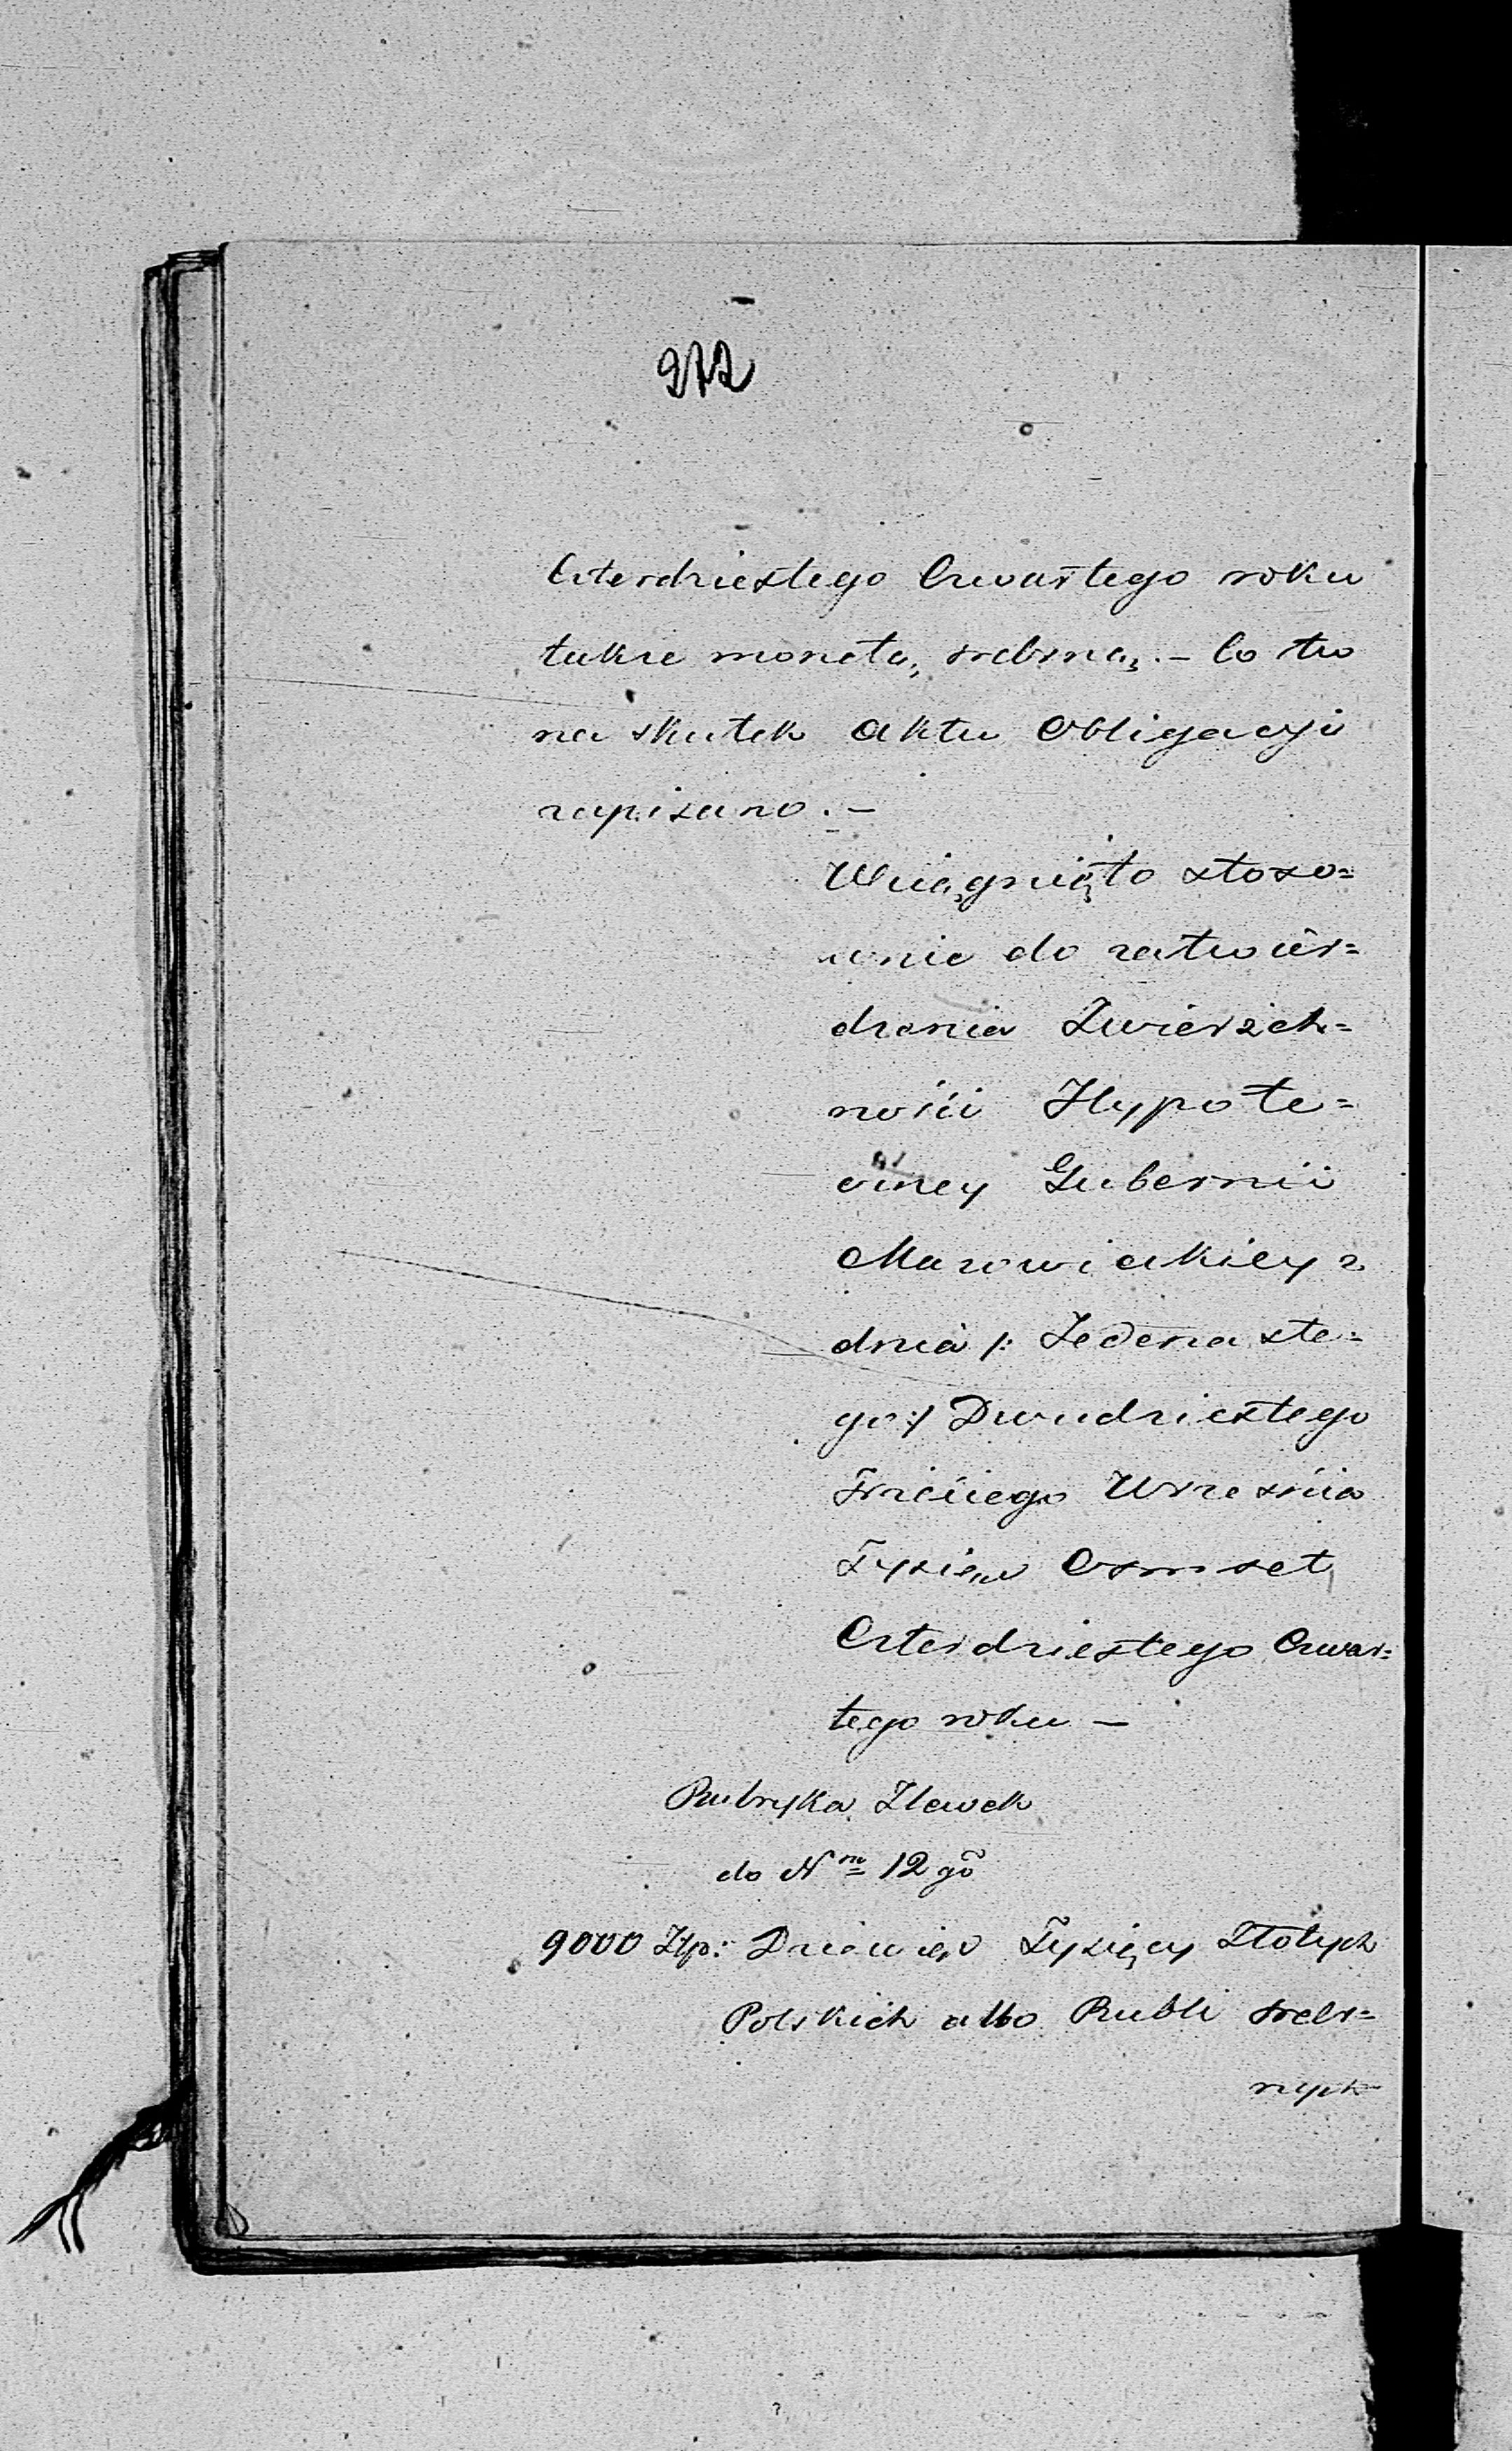 272
Czterdziestego Czwartego roku
także monetą srebrną. – Co tu
na skutek Aktu Obligacyi
zapisano. –
Wciągnięto stoso=
wnie do zatwier=
dzenia Zwierzch=
ności Hypote=
cznej Gubernii
Mazowieckiey z
dnia /: Jedenaste=
go :/ Dwudziestego
Trzeciego Września
Tysiąc Osmset
Czterdziestego Czwar=
tego roku –
Rubryka Zlewek
do Nru 12go
9000 Złp: Dziewięć Tysięcy Złotych
Polskich albo Rubli srebr=
nych